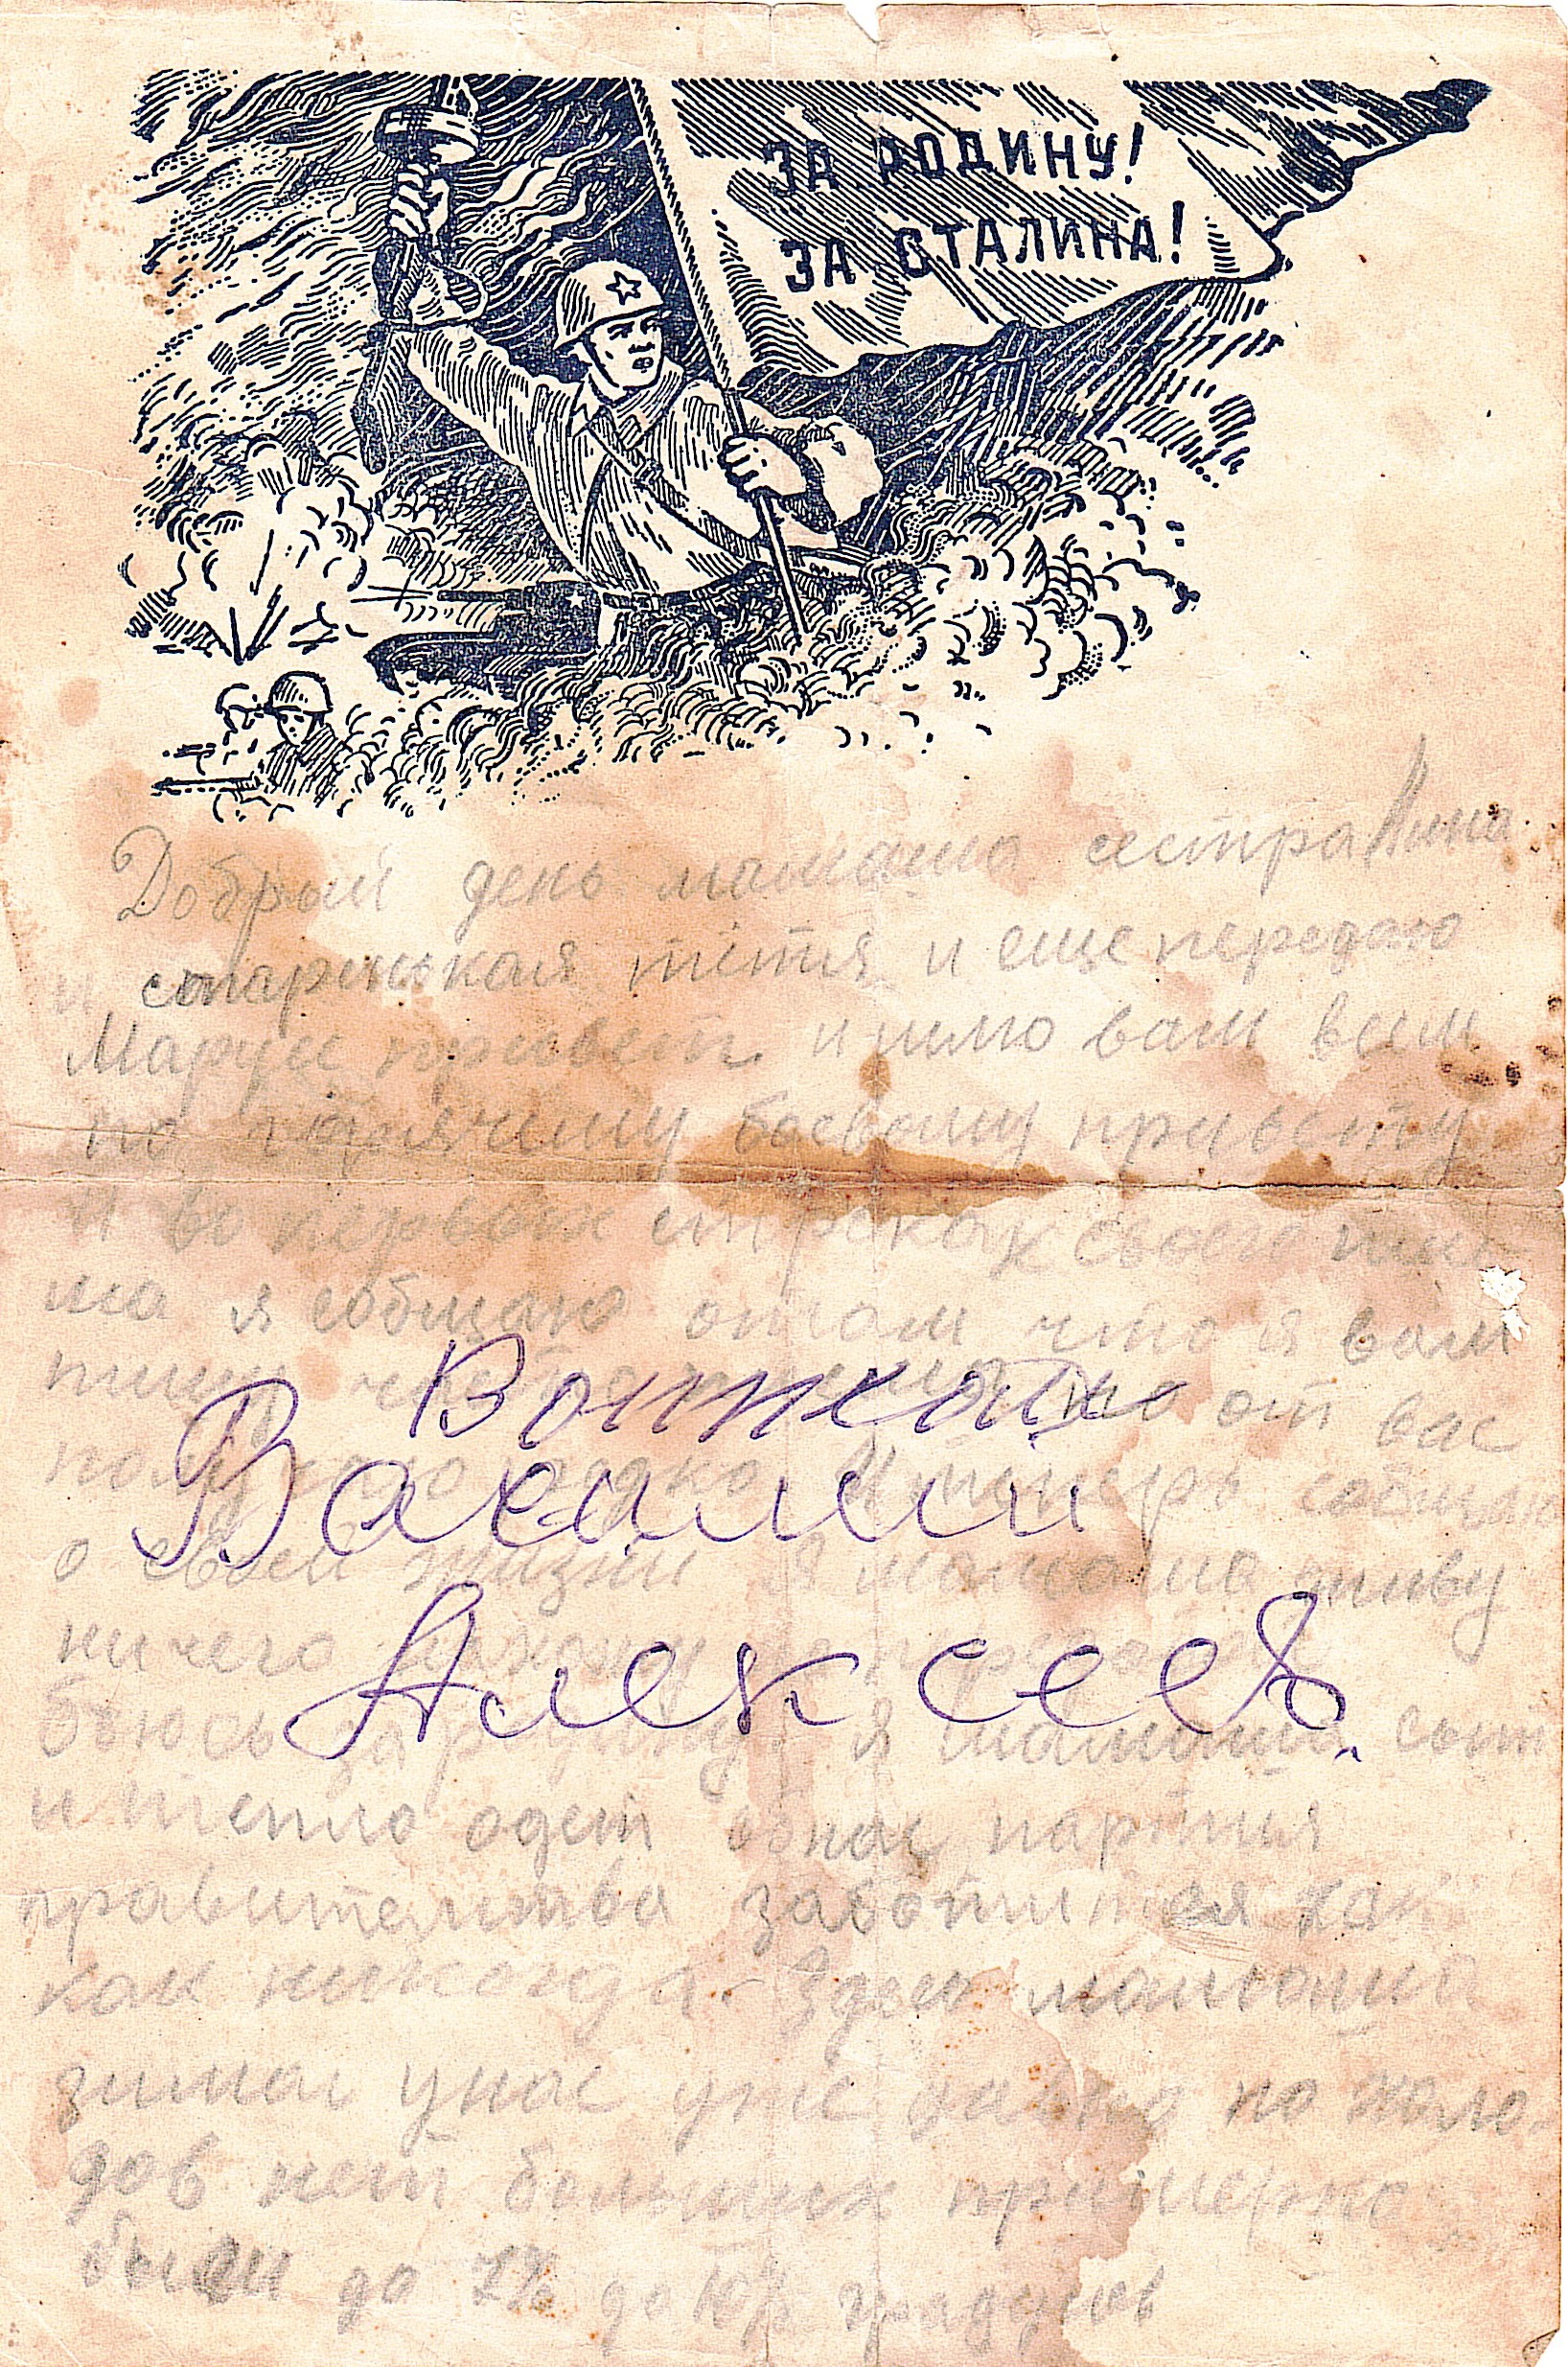 ЗА РОДИНУ!
ЗА СТАЛИНА!
Добрый день мамаша сестра Нина
и старенькая тётя и еще передаю
Марусе привет и шлю вам всем
по горячему боевому привету
И во первых строках своего пись
ма я собщаю отом что я вам
пишу но от вас
получаю редко И теперь собщаю
о своей жизни я мамаша живу
ничего
бьюсь за родину я мамаша сыт
и тепло одет обнас партия
правительства заботится как
как никогда. Здесь мамаша
зима унас уже давно но холо-
дов нет больших примерно
были до до 10 градусов
Вакалин
Алексей.